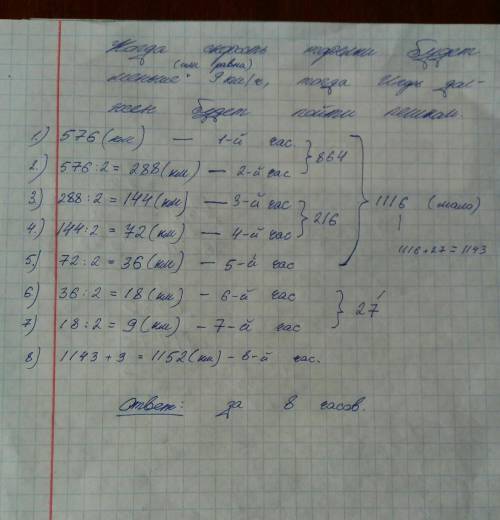 Когда скорость поездки будет
(или равна)
меньше 9 км/ч, тогда Игорь дол-
жен будет пойти пешком.
1) 576 (км) — 1-й час
2) 576:2 = 288 (км) — 2-й час } 864
3) 288:2 = 144 (км) — 3-й час
4) 144:2 = 72 (км) — 4-й час } 216
1116 (мало)
1116+27=1143
5) 72:2 = 36 (км) — 5-й час
6) 36:2 = 18 (км) — 6-й час
7) 18:2 = 9 (км) — 7-й час } 27
8) 1143 + 9 = 1152 (км) – 8-й час.
Ответ: за 8 часов.